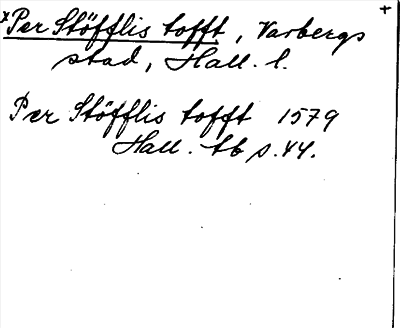 *Per Stöfflis tofft, Varbergs +
stad, Hall. l.
Per Stöfflis tofft 1579
Hall. tb s. 44.